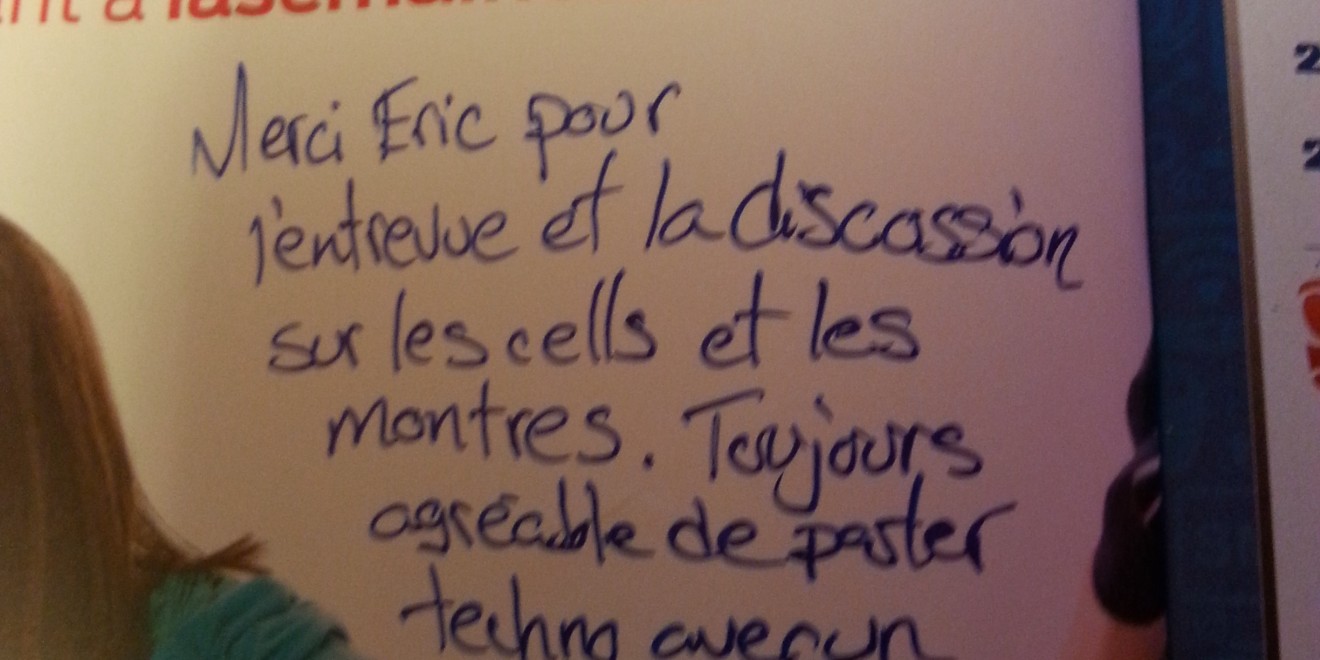 Merci Eric pour
l'entrevue et la discussion
sur les cells et les
montres. Toujours
agréable de parler
techno avec un